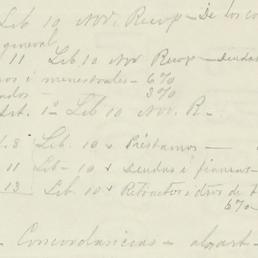 Lib 10 Nov. Recop — De los co
general
11 Lib 10 Nov Recop — Deudas
os i menestrales — 6%
ados — 3%
Art. 1º Lib 10 Nov. R —
. 8 Lib. 10 " Préstamos —
11 Lib — 10 " Deudas i fianzas
13 Lib. 10 " Retractos i dros de
6%
— Concordancias — al art —